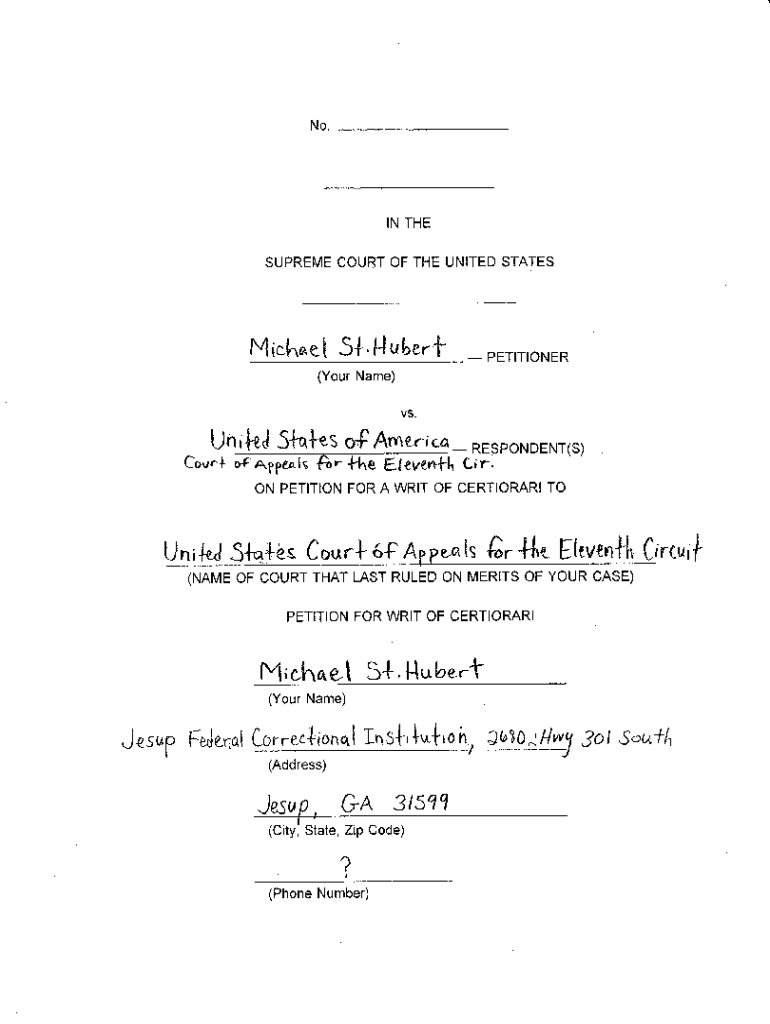 No.
IN THE
SUPREME COURT OF THE UNITED STATES
Michael St. Hubert — PETITIONER
(Your Name)
vs.
United States of America — RESPONDENT(S)
Court of Appeals for the Eleventh Cir.
ON PETITION FOR A WRIT OF CERTIORARI TO
United States Court of Appeals for the Eleventh Circuit
(NAME OF COURT THAT LAST RULED ON MERITS OF YOUR CASE)
PETITION FOR WRIT OF CERTIORARI
Michael St. Hubert
(Your Name)
Jesup Federal Correctional Institution, 2680, Hwy 301 South
(Address)
Jesup, GA 31599
(City, State, Zip Code)
?
(Phone Number)